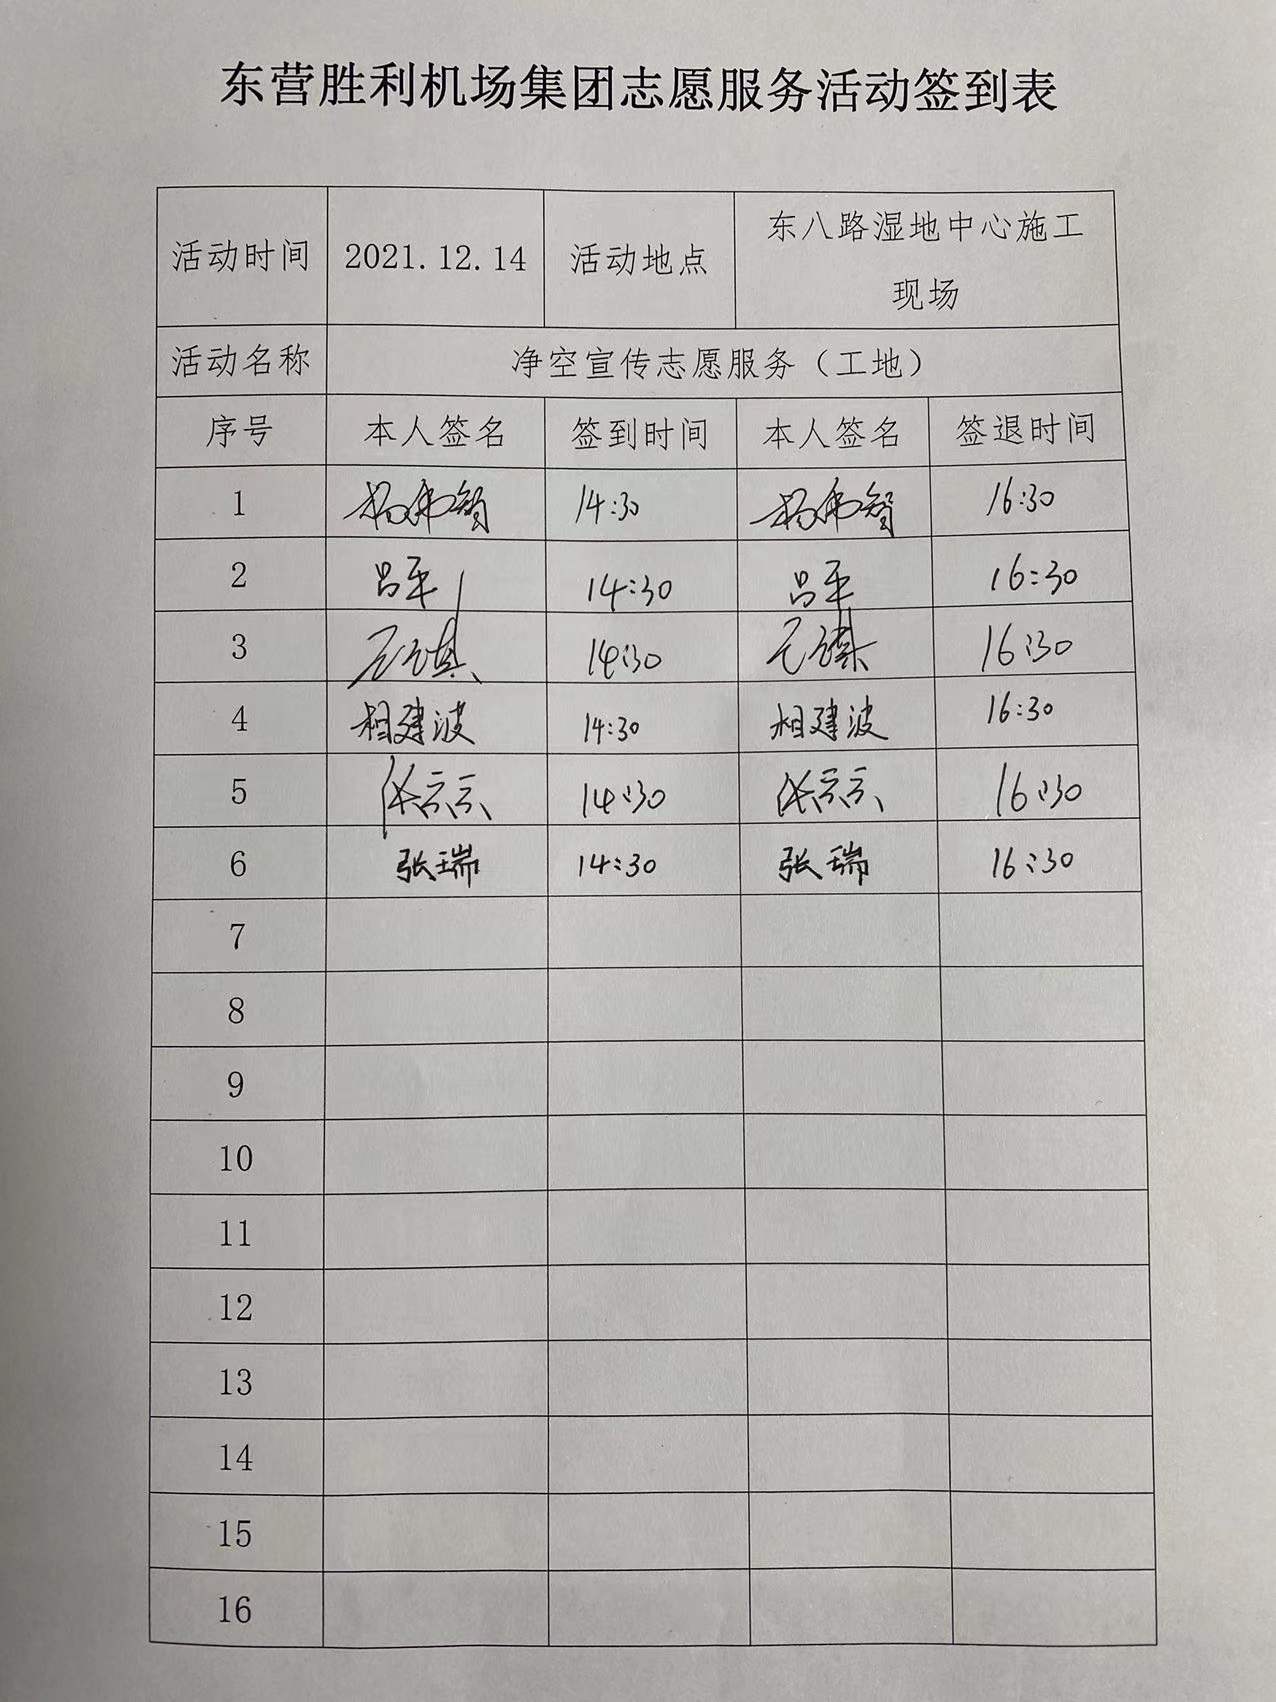 东营胜利机场集团志愿服务活动签到表
活动时间 2021.12.14 活动地点 东八路湿地中心施工
现场
活动名称 净空宣传志愿服务（工地）
序号 本人签名 签到时间 本人签名 签退时间
1 14:30 16:30
2 吕平 14:30 吕平 16:30
3 14:30 16:30
4 相建波 14:30 相建波 16:30
5 14:30 16:30
6 张瑞 14:30 张瑞 16:30
7
8
9
10
11
12
13
14
15
16